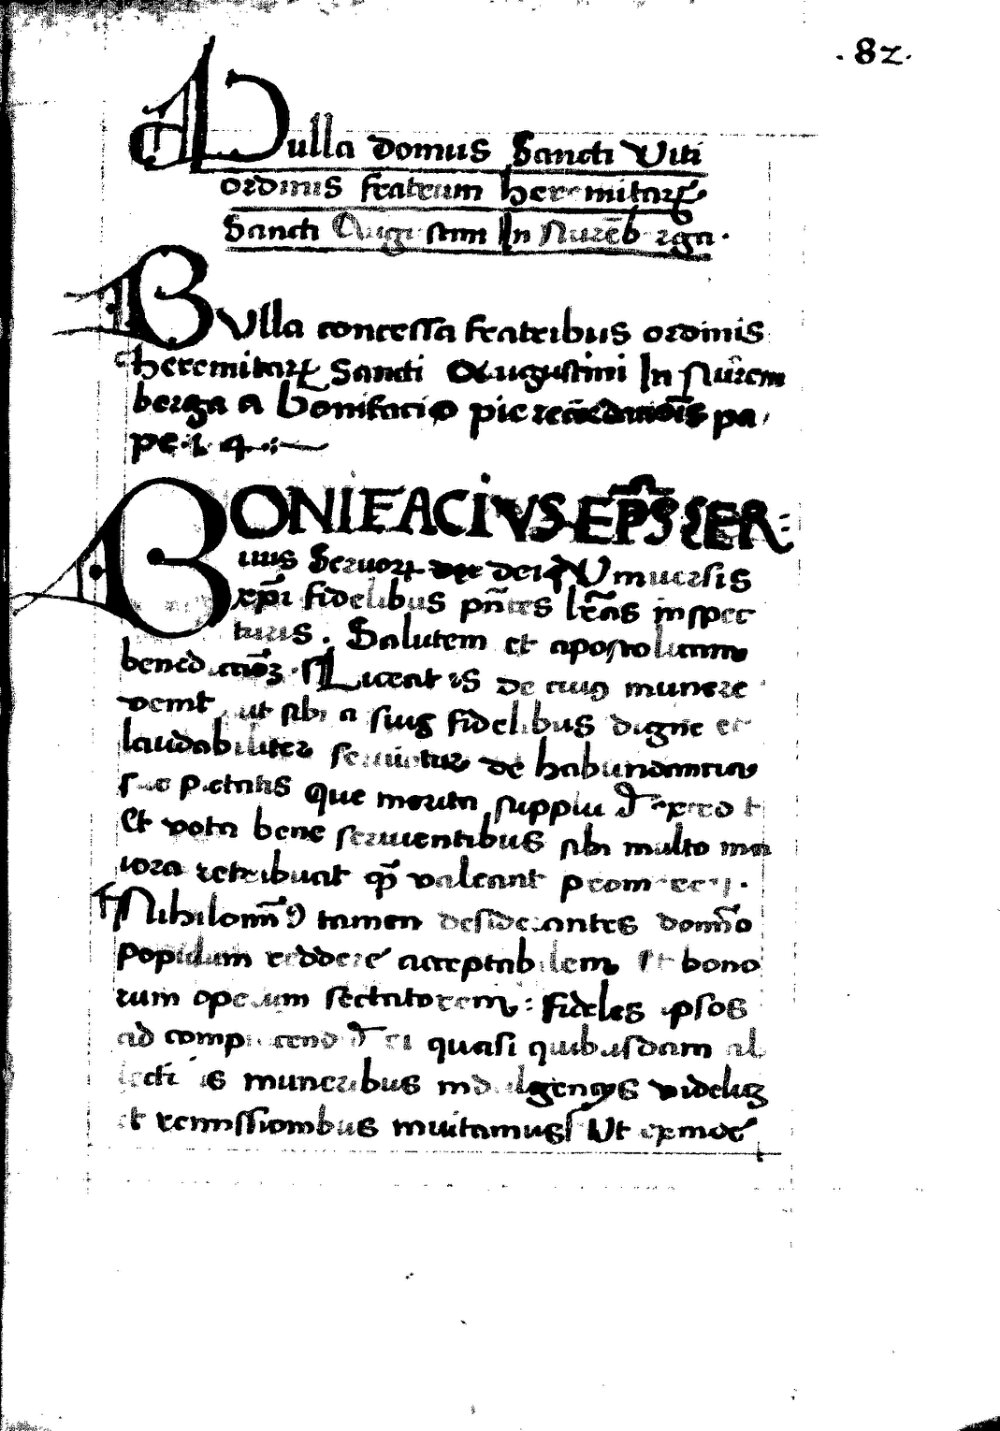 .82.
Bulla domus Sancti Viti
ordinis fratrum heremitarꝝ
Sancti Augustini In Nurēberga.
BVlla concessa fratribus ordinis
heremitarꝝ Sancti Augustini In Nurem
berga a bonifacio pie recōedationis pa
pe .i. 4
BONIFACIVS EP̄S SER
uus Seruorꝝ dei Vniuersis
xp̄i fidelibus pn̄tes lr̄as inspec
turis. Salutem et apostolicam
bened Licet is de cuiꝯ munere
venit ut sibi a suis fidelibus digne et
laudabiliter seruietur de habundantia
sue pietatis que merita supplicū
Et vota bene seruientibus sibi multo ma
iora retribuat qͫ valeant
Nihilomīꝯ tamen desiderantes domīo
Populum reddere acceptabilem Et bono
rum operum sectatorem: fideles ipsos
ad quasi quibusdam al
lectiuis muneribus indulgencijs videlicꝫ
et remissionibus inuitamus Ut exinde